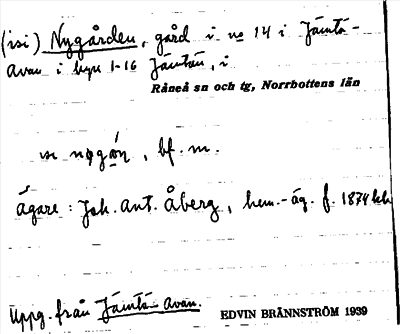 (isi) Nygården, gård i no 14 i Jämtö-
avan i byn 1-16 Jämtön, i
Råneå sn och tg, Norrbottens län
bf. m.
Ägare: Joh. Ant. Åberg, hem.-äg. f. 1874
Uppg. från Jämtö-avan.
EDVIN BRÄNNSTRÖM 1939